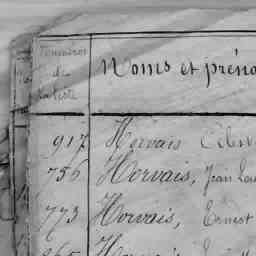 Numéros
de
la liste
Noms et préno
917 Horvais Célest
756 Horvais, Jean Lou
773 Horvais, Ernest
865 Horvais